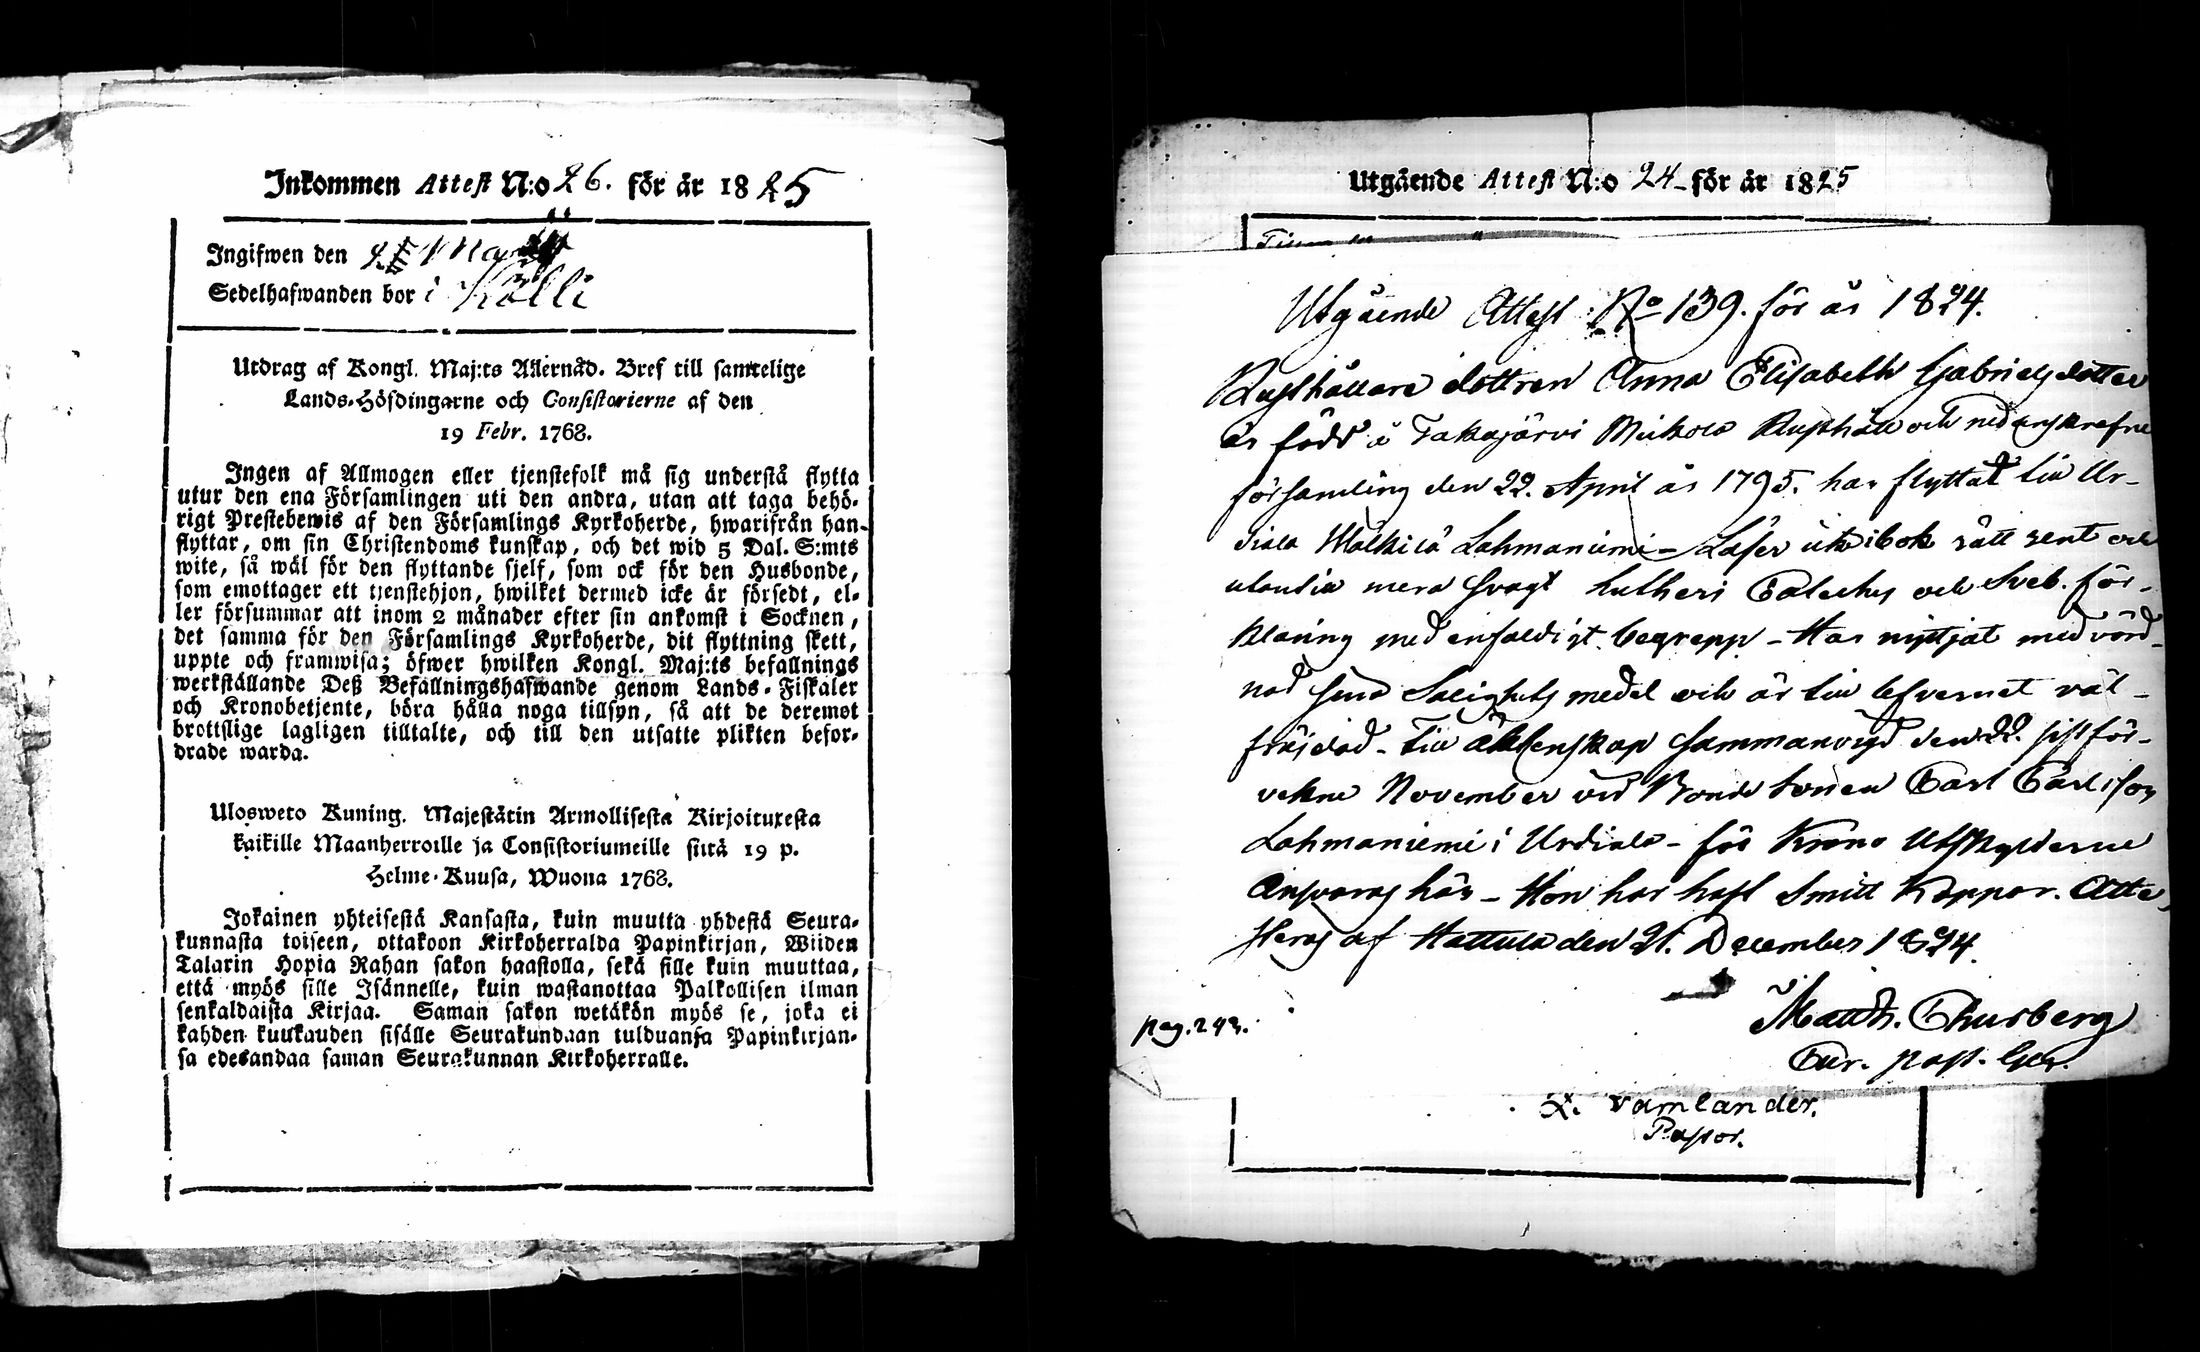 Inkommen Attest N:o 26. för år 1825
Ingifwen den
Sedelhafwanden bor i Kölli
Utdrag af Kongl. Maj:ts Allernåd. Bref till samtelige
Lands-Höfdingarne och Consistorierne af den
19 Febr. 1768.
Ingen af Allmogen eller tjenstefolk må sig understå flytta
utur den ena Församlingen uti den andra, utan att taga behö-
rigt Prestebewis af den Församlings Kyrkoherde, hwarifrån han
flyttar, om sin Christendoms kunskap, och det wid 5 Dal. S:mts
wite, så wäl för den flyttande sjelf, som ock för den Husbonde,
som emottager ett tjenstehjon, hwilket dermed icke är försedt, el-
ler försummar att inom 2 månader efter sin ankomst i Socknen,
det samma för den Församlings Kyrkoherde, dit flyttning skett,
uppte och framwisa; öfwer hwilken Kongl. Maj:ts befallnings
werkställande Deß Befallningshafwande genom Lands-Fiskaler
och Kronobetjente, böra hålla noga tillsyn, så att de deremot
brottslige lagligen tilltalte, och till den utsatte plikten befor-
drade warda.
Ulosweto Kuning. Majestätin Armollisesta Kirjoituxesta
kaikille Maanherroille ja Consistoriumeille siitä 19 p.
Helme-Kuusa, Wuona 1768.
Jokainen yhteisestä Kansasta, kuin muutta yhdestä Seura-
kunnasta toiseen, ottakoon Kirkoherralda Papinkirjan, Wiiden
Talarin Hopia Rahan sakon haastolla, sekä sille kuin muuttaa,
että myös sille Isännelle, kuin wastanottaa Palkollisen ilman
senkaldaista Kirjaa. Saman sakon wetäkön myös se, joka ei
kahden kuukauden sisälle Seurakundaan tulduansa Papinkirjan-
sa edesandaa saman Seurakunnan Kirkoherralle.
Utgående Attest N:o 24 för år 1825
Utgående Attest No 139. för år 1824.
Rusthållare dottren Anna Elisabeth Gabrielsdotter
är född å Takajärvi Mickola Rusthåll och nedanskrefne
församling den 22. April år 1795. har flyttat till Ur-
diala Lahmaniemi - Läser uti bok rätt rent och
utantill mera svagt Lutheri Cateches och Sveb. för-
klaring med enfaldigt begrepp - Har nyttjat med vörd-
nad sina Salighets medel och är till lefvernet väl-
fräjdad - Till äktenskap sammanvigd den 22. sistför-
vekne November vid Bonde sonen Carl Carlsson
Lahmaniemi i Urdiala - för Krono Utskylderne
ansvaras här - Hon har haft Smitt Koppor. Atte-
steras af Hattula den 21. December 1824.
Matth. Thusberg
Cur. past. Ger.
pag. 243.
Vamlander.
Pastor.